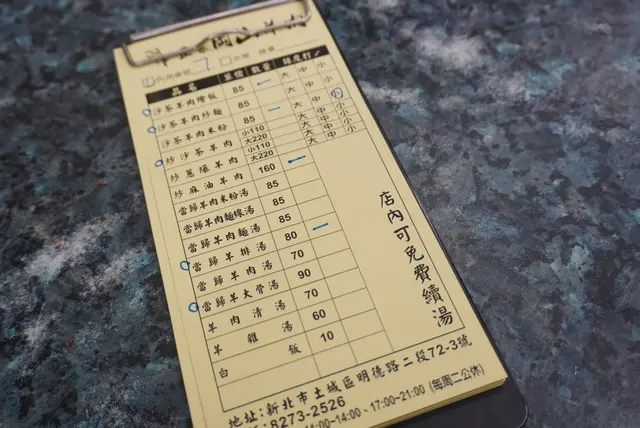 內用桌號 7
品名 單價 數量 辣度打✓
沙茶羊肉燴飯 85 大 中 小
沙茶羊肉炒麵 85 大 中 小
沙茶羊肉米粉 大 中 小
炒沙茶羊肉 小110 大220 大 中 小
炒蔥爆羊肉 小110 大220 大 中 小
炒麻油羊肉 160
當歸羊肉米粉湯 85
當歸羊肉麵線湯 85
當歸羊肉麵湯 85
當歸羊排湯 80
當歸羊肉湯 70
當歸羊大骨湯 90
羊肉清湯 70
羊雜湯 60
白飯 10
店內可免費續湯
地址:新北市土城區明德路二段72-3號
8273-2526
11:00~14:00、17:00~21:00 (每周二公休)